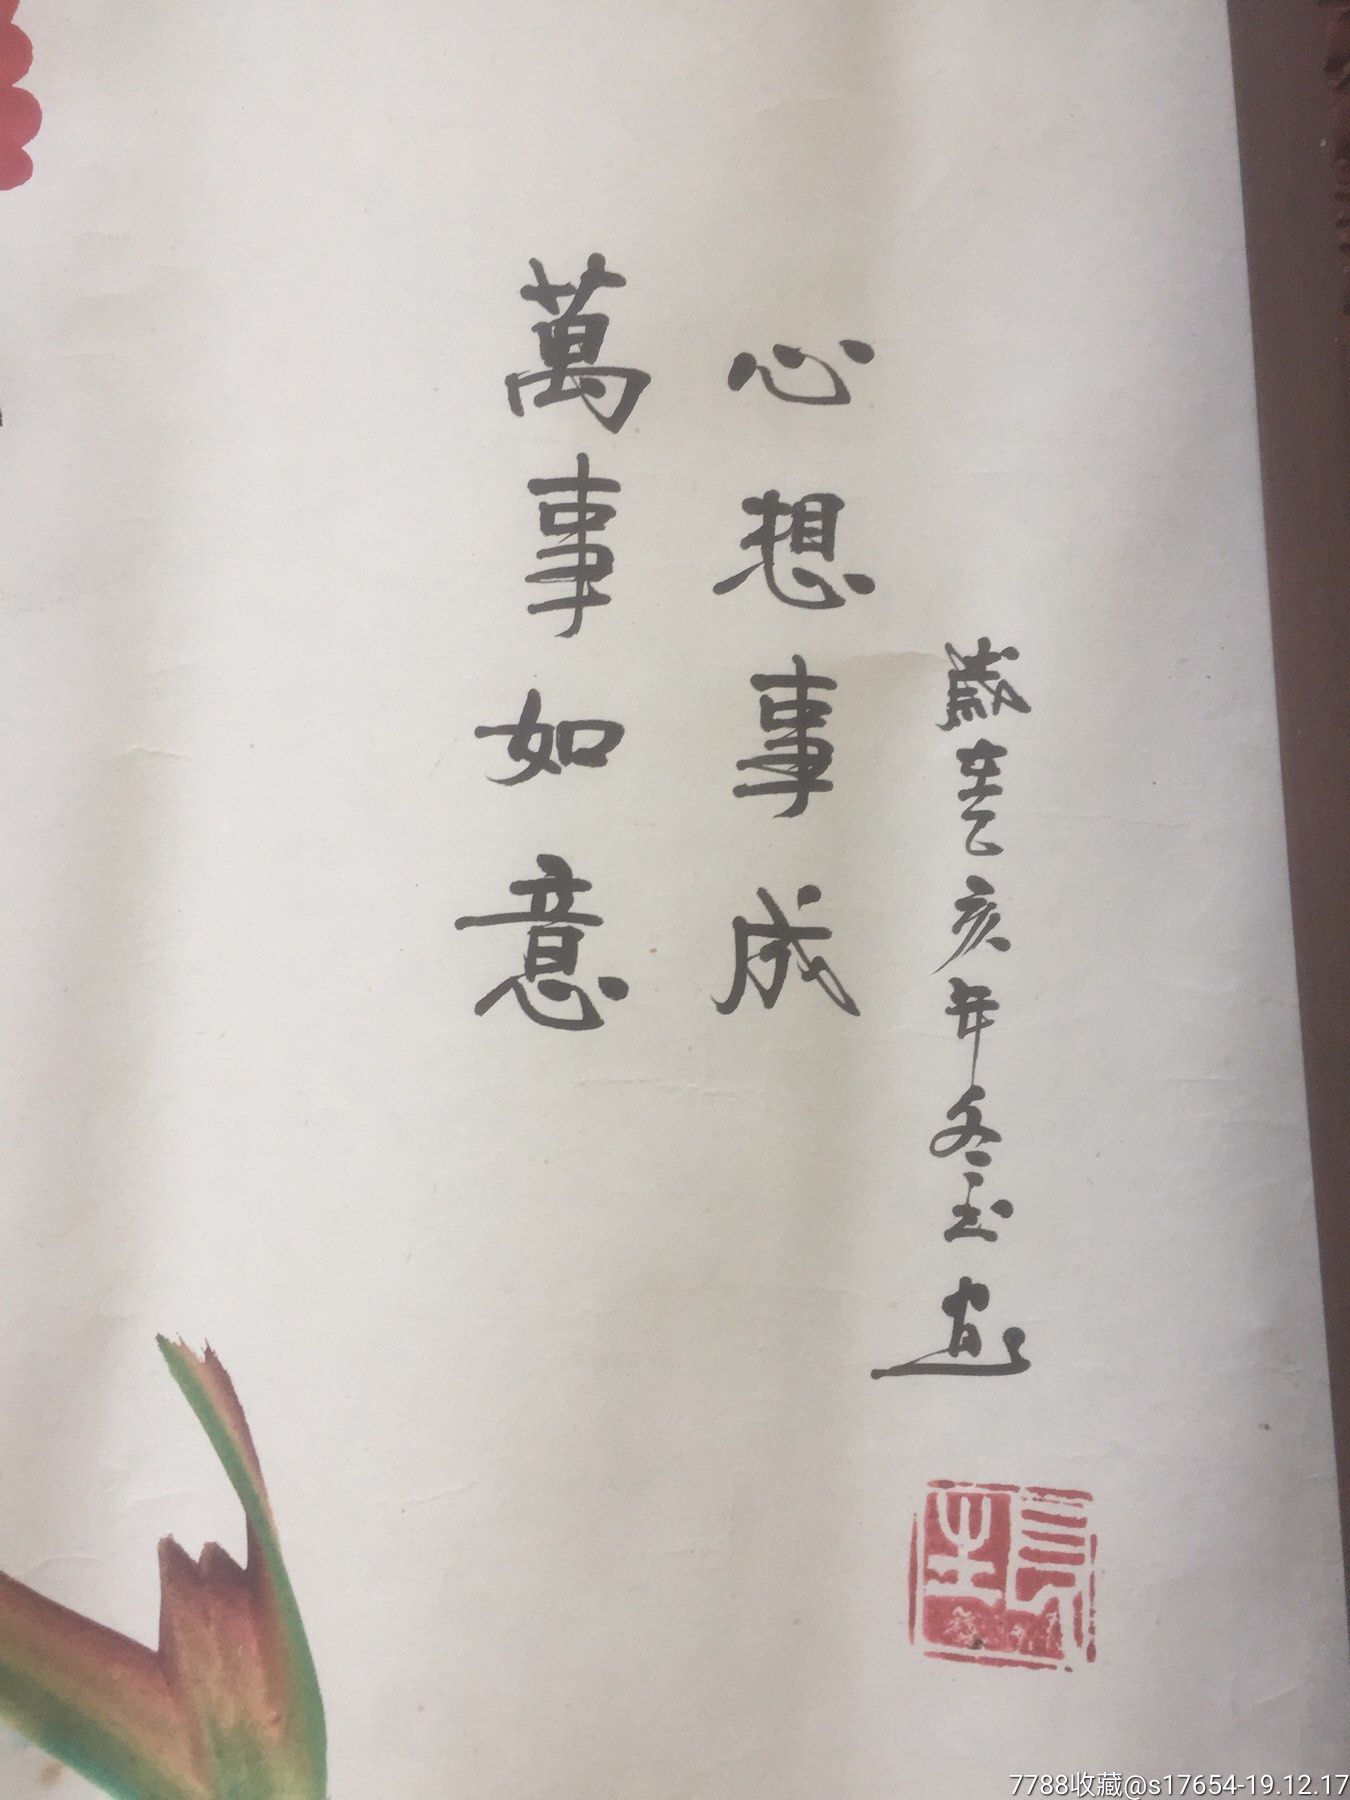 心想事成
萬事如意
歲在乙亥年冬玉
7788收藏@s17654-19.12.17